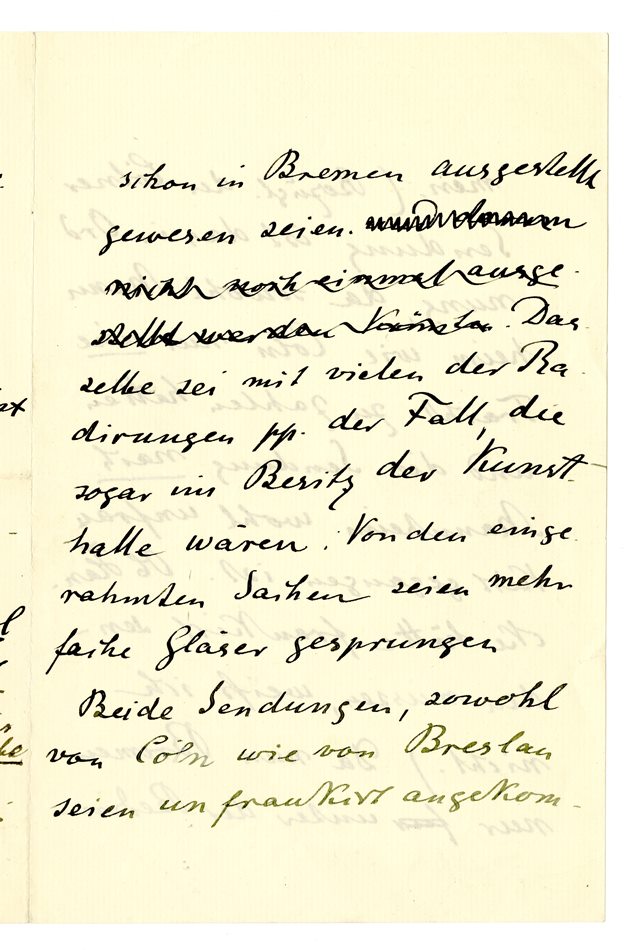 schon in Bremen ausgestellt
gewesen seien. und darum
nicht noch einmal ausge-
stellt werden könnten. Das-
selbe sei mit vielen der Ra-
dirungen pp. der Fall, die
sogar im Besitz der Kunst-
halle wären. Von den einge-
rahmten Sachen seien mehr-
fache Gläser gesprungen
Beide Sendungen, sowohl
von Cöln wie von Breslau
seien unfrankirt angekom-